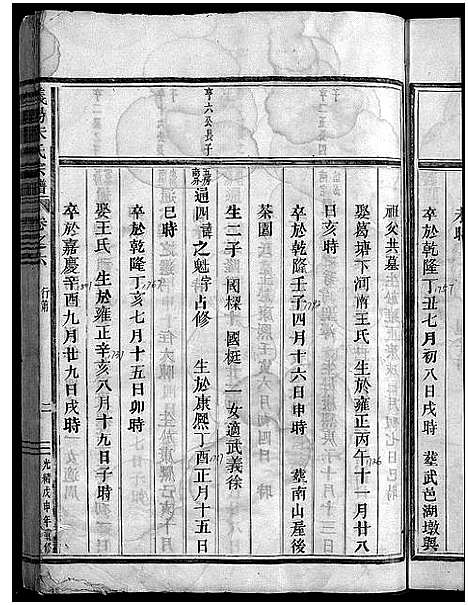 未聘
卒於乾隆丁丑七月初八日戌時 1757 塟武邑湖墩與
祖父共墓
娶葛塘下河南王氏 生於雍正丙午十一月廿八 1726
日亥時
卒於乾隆壬子四月十六日申時 1792 塟南山屋後
茶園
生二子 國樑 國梃 一女適武義徐
亨六公長子
通四 諱之魁 字占修 生於康熙丁酉正月十五日 1717
巳時
卒於乾隆丁亥七月十五日卯時 1767
娶王氏 生於雍正辛亥八月十九日子時 1731
卒於嘉慶辛酉九月廿九日戌時 1801
義陽朱氏宗譜 卷之六 行第 二 光緒戊申年重修